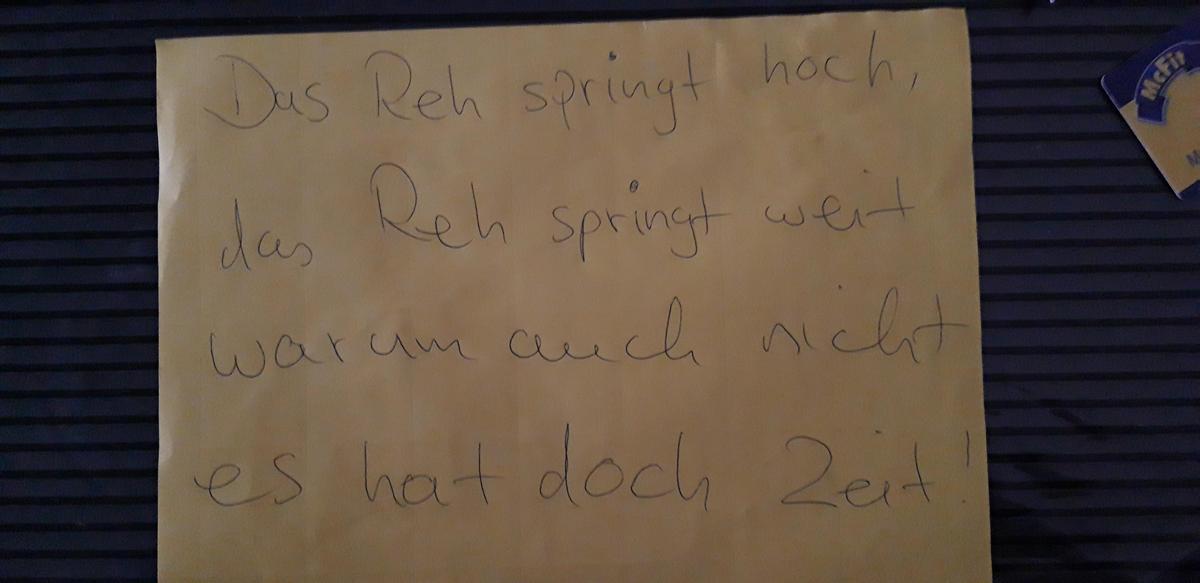 Das Reh springt hoch,
das Reh springt weit
warum auch nicht
es hat doch Zeit!
McFit